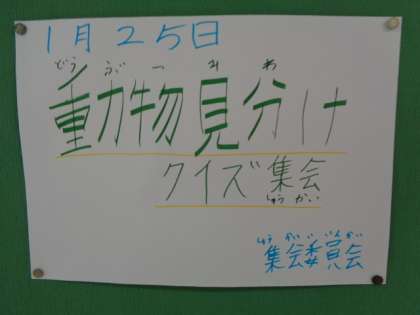 1月25日
どうぶつみわ
動物見分け
クイズ集会
しゅうかい
しゅうかいいいんかい
集会委員会